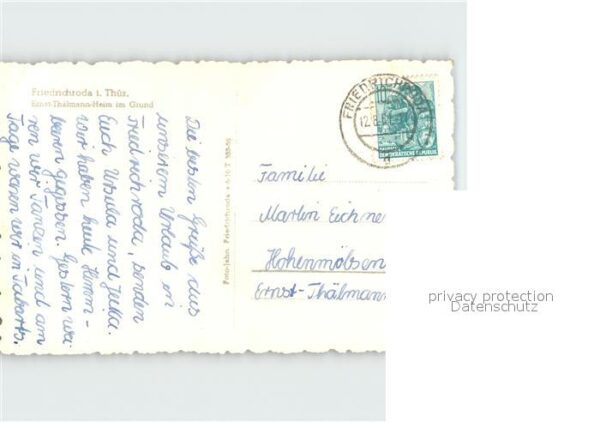 Friedrichroda i. Thür.
Ernst-Thälmann-Heim im Grund
Die besten Grüße aus
unserem Urlaub in
Friedrichroda, senden
Euch Ursula und Julia.
Wir haben heute Himm-
beeren gegessen. Gestern wa-
ren wir Tanzen und am
Tage waren wir in Tabarts.
Foto-Jahn, Friedrichroda
FRIEDRICHRODA
12.8.
DEMOKRATISCHE REPUBLIK
Familie
Martin Eichne
Hohenmölsen
Ernst-Thälmann
privacy protection
Datenschutz